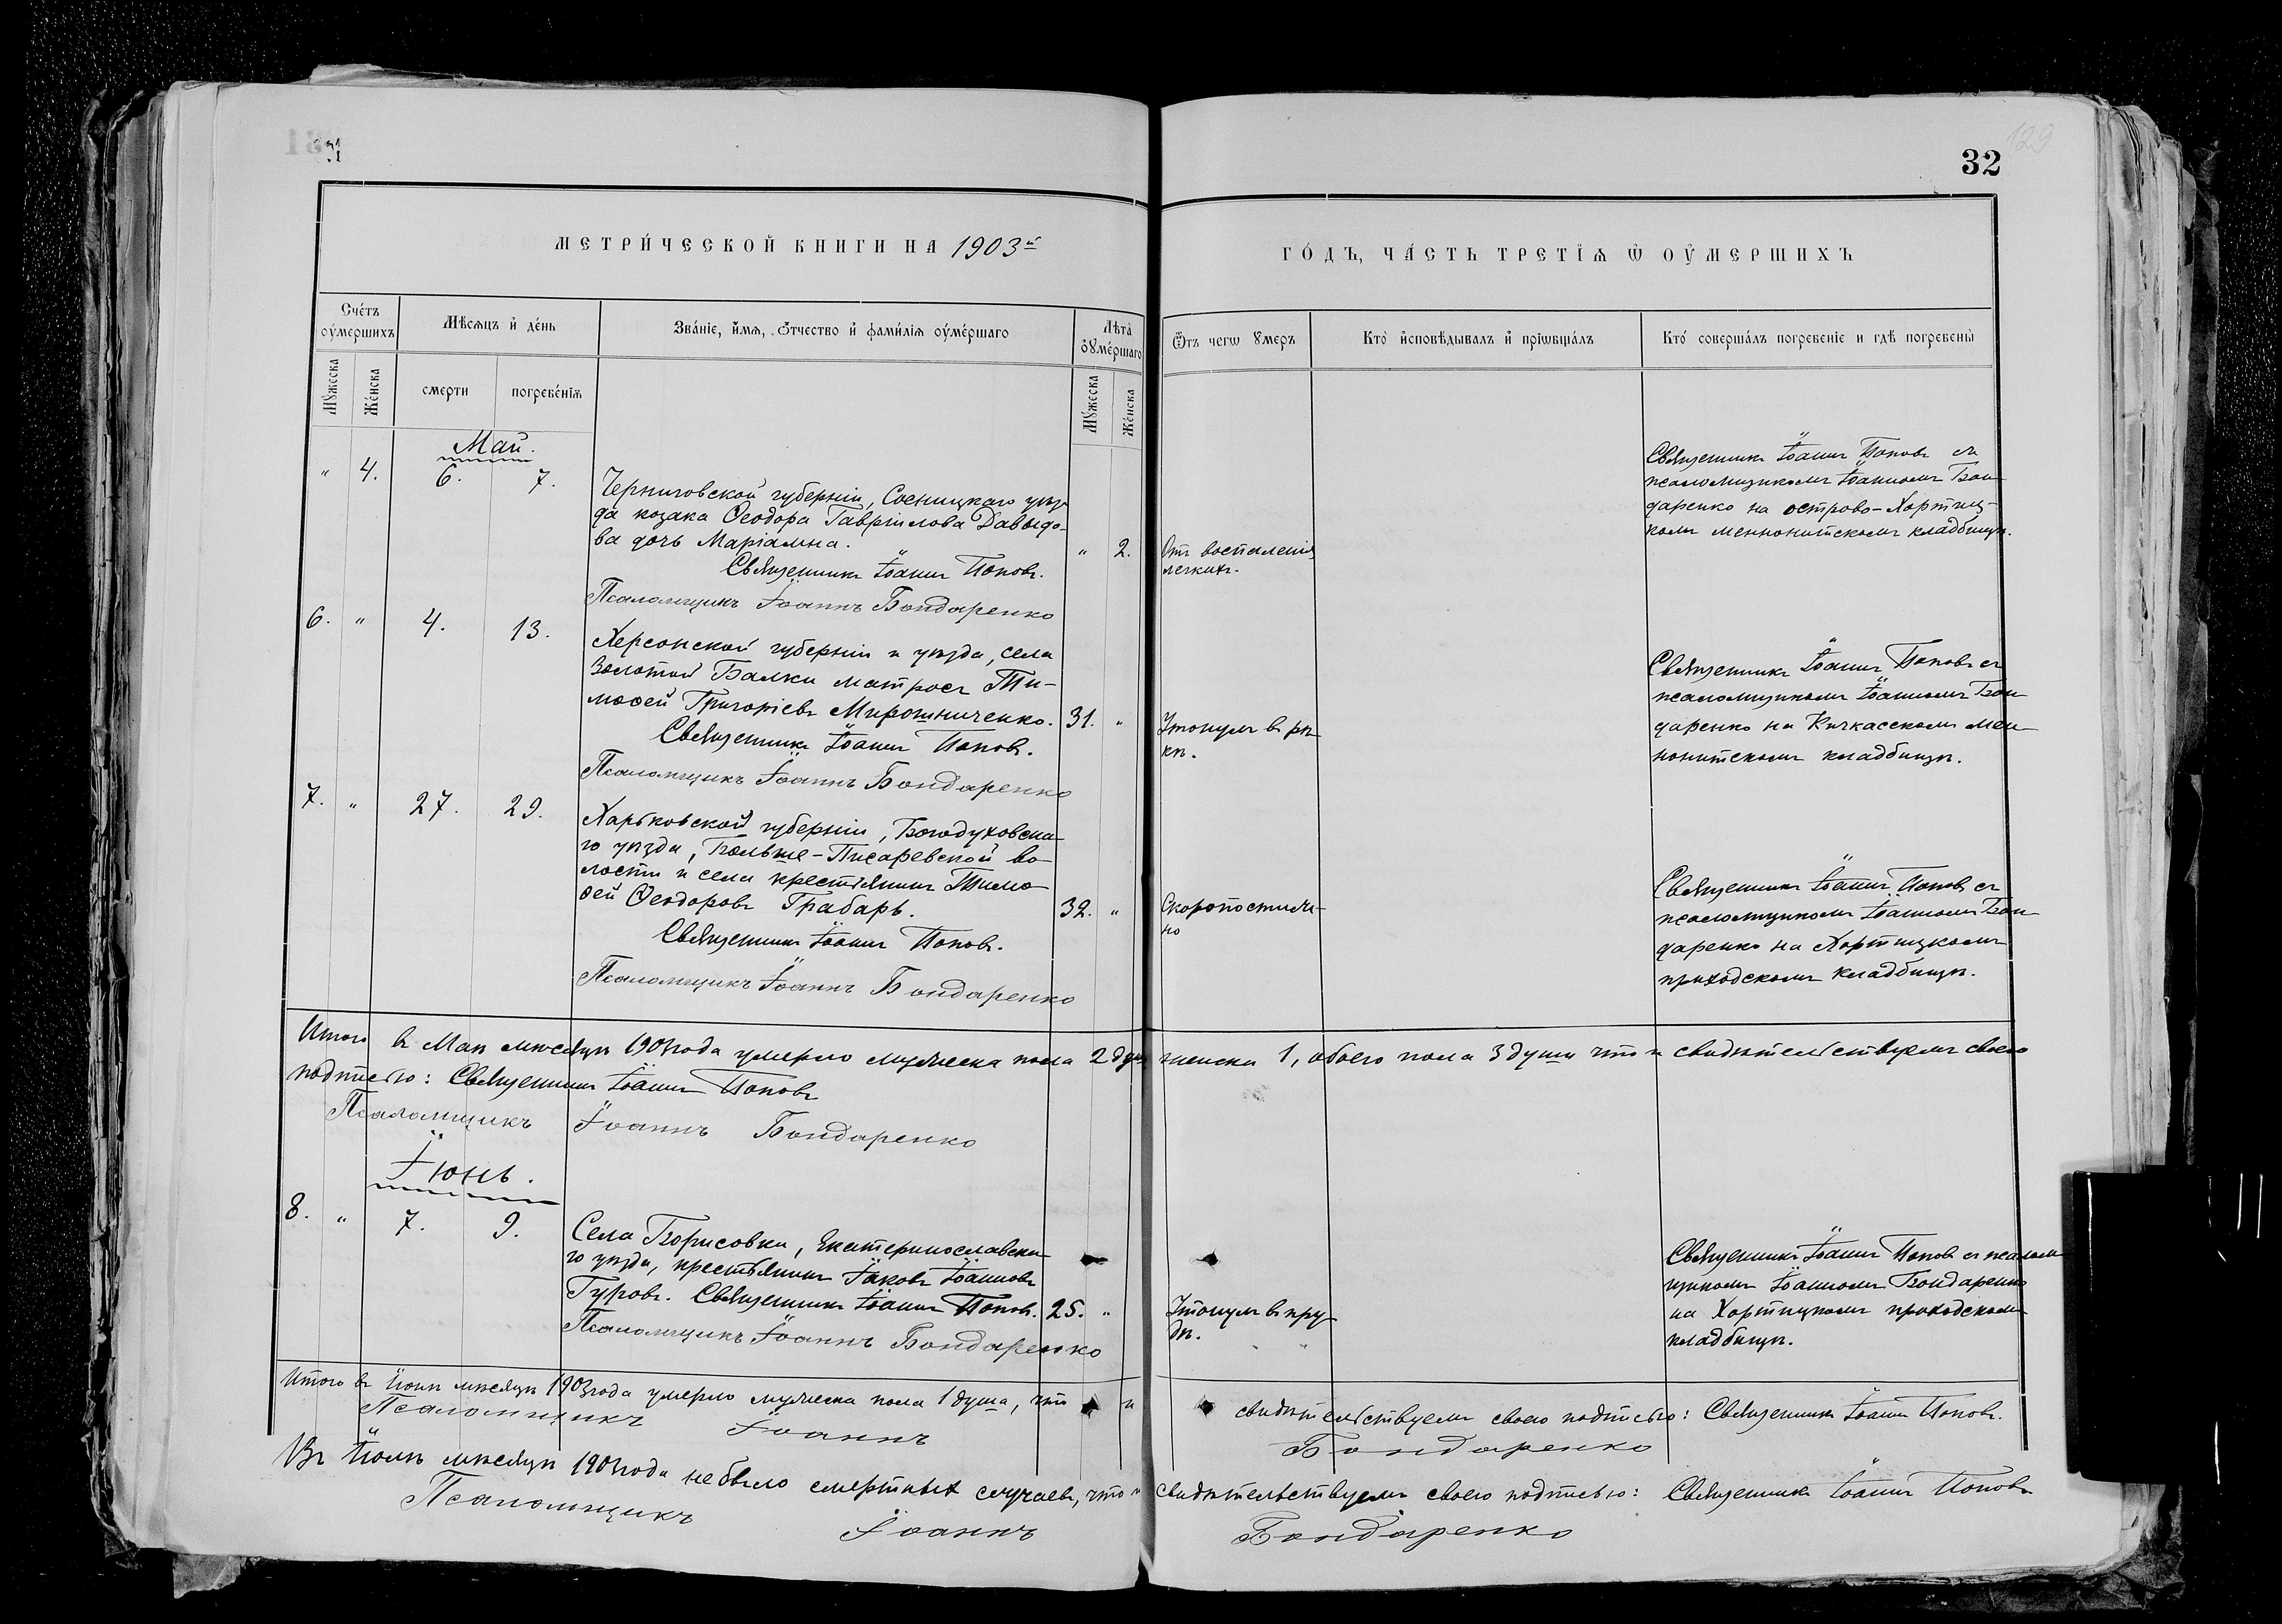 32
129
МЕТРИ́ЧЕСКОЙ КНИГИ НА 1903й
ГО́ДЪ, ЧА́СТЬ ТРЕТІѦ Ѡ ОУ҆МЕРШИХЪ
Сче́тъ оу҆ме́ршихъ
Мѣсяцъ и҆ де́нь
Зва́ніе, и҆́мя, Ѻ҆тчество и҆ фами́лія оу҆ме́ршаго
Лѣта̀ оу҆ме́ршаго
Ѿъ чегѡ ꙋмеръ
Кто̀ и҆сповѣ́дывалъ и҆ прїѡбща́лъ
Кто́ соверша́лъ погребе́ніе и гдѣ̀ погребены̀
Мꙋ́жеска
Же́нска
смерти
погребе́нія
Мꙋ́жеска
Же́нска
Май.
" 4. 6. 7.
Черниговской губерніи, Сосницкаго уѣз-
да козака Ѳеодора Гавріилова Давыдо-
ва дочь Маріамна.
" 2.
Отъ воспаленія
легкихъ.
Священникъ Іоаннъ Поповъ.
Псаломщикъ Іоаннъ Бондаренко
Священникъ Іоаннъ Поповъ съ
псаломщикомъ Іоанномъ Бон-
даренко на острово-Хортиц-
комъ меннонитскомъ кладбищѣ.
6. " 4. 13.
Херсонской губерніи и уѣзда, села
Золотой Балки матросъ Ти-
моѳей Григоріевъ Мирошниченко.
31. "
Утонулъ въ рѣ-
кѣ.
Священникъ Іоаннъ Поповъ.
Псаломщикъ Іоаннъ Бондаренко
Священникъ Іоаннъ Поповъ съ
псаломщикомъ Іоанномъ Бон-
даренко на Кичкасскомъ мен-
нонитскомъ кладбищѣ.
7. " 27. 29.
Харьковской губерніи, Богодуховска-
го уѣзда, Больше-Писаревской во-
лости и села крестьянинъ Тимо-
ѳей Ѳеодоровъ Грабарь.
32. "
Скоропостиж-
но
Священникъ Іоаннъ Поповъ.
Псаломщикъ Іоаннъ Бондаренко
Священникъ Іоаннъ Поповъ съ
псаломщикомъ Іоанномъ Бон-
даренко на Хортицкомъ
приходскомъ кладбищѣ.
Итого въ Маѣ мѣсяцѣ 1903 года умерло мужеска пола 2 душ женска 1, обоего пола 3 души что и свидѣтельствуемъ своею
подписью: Священникъ Іоаннъ Поповъ
Псаломщикъ Іоаннъ Бондаренко
Іюнь.
8. " 7. 9.
Села Борисовки, Екатеринославска-
го уѣзда, крестьянинъ Іаковъ Іоанновъ
Гуровъ. Священникъ Іоаннъ Поповъ.
25. "
Утонулъ въ пру-
дѣ.
Псаломщикъ Іоаннъ Бондаренко
Священникъ Іоаннъ Поповъ съ псалом-
щикомъ Іоанномъ Бондаренко
на Хортицкомъ приходскомъ
кладбищѣ.
Итого въ Іюнѣ мѣсяцѣ 1903 года умерло мужеска пола 1 душа, что и свидѣтельствуемъ своею подписью: Священникъ Іоаннъ Поповъ.
Псаломщикъ Іоаннъ Бондаренко
Въ Іюлѣ мѣсяцѣ 1903 года не было смертныхъ случаевъ, что и свидѣтельствуемъ своею подписью: Священникъ Іоаннъ Поповъ
Псаломщикъ Іоаннъ Бондаренко